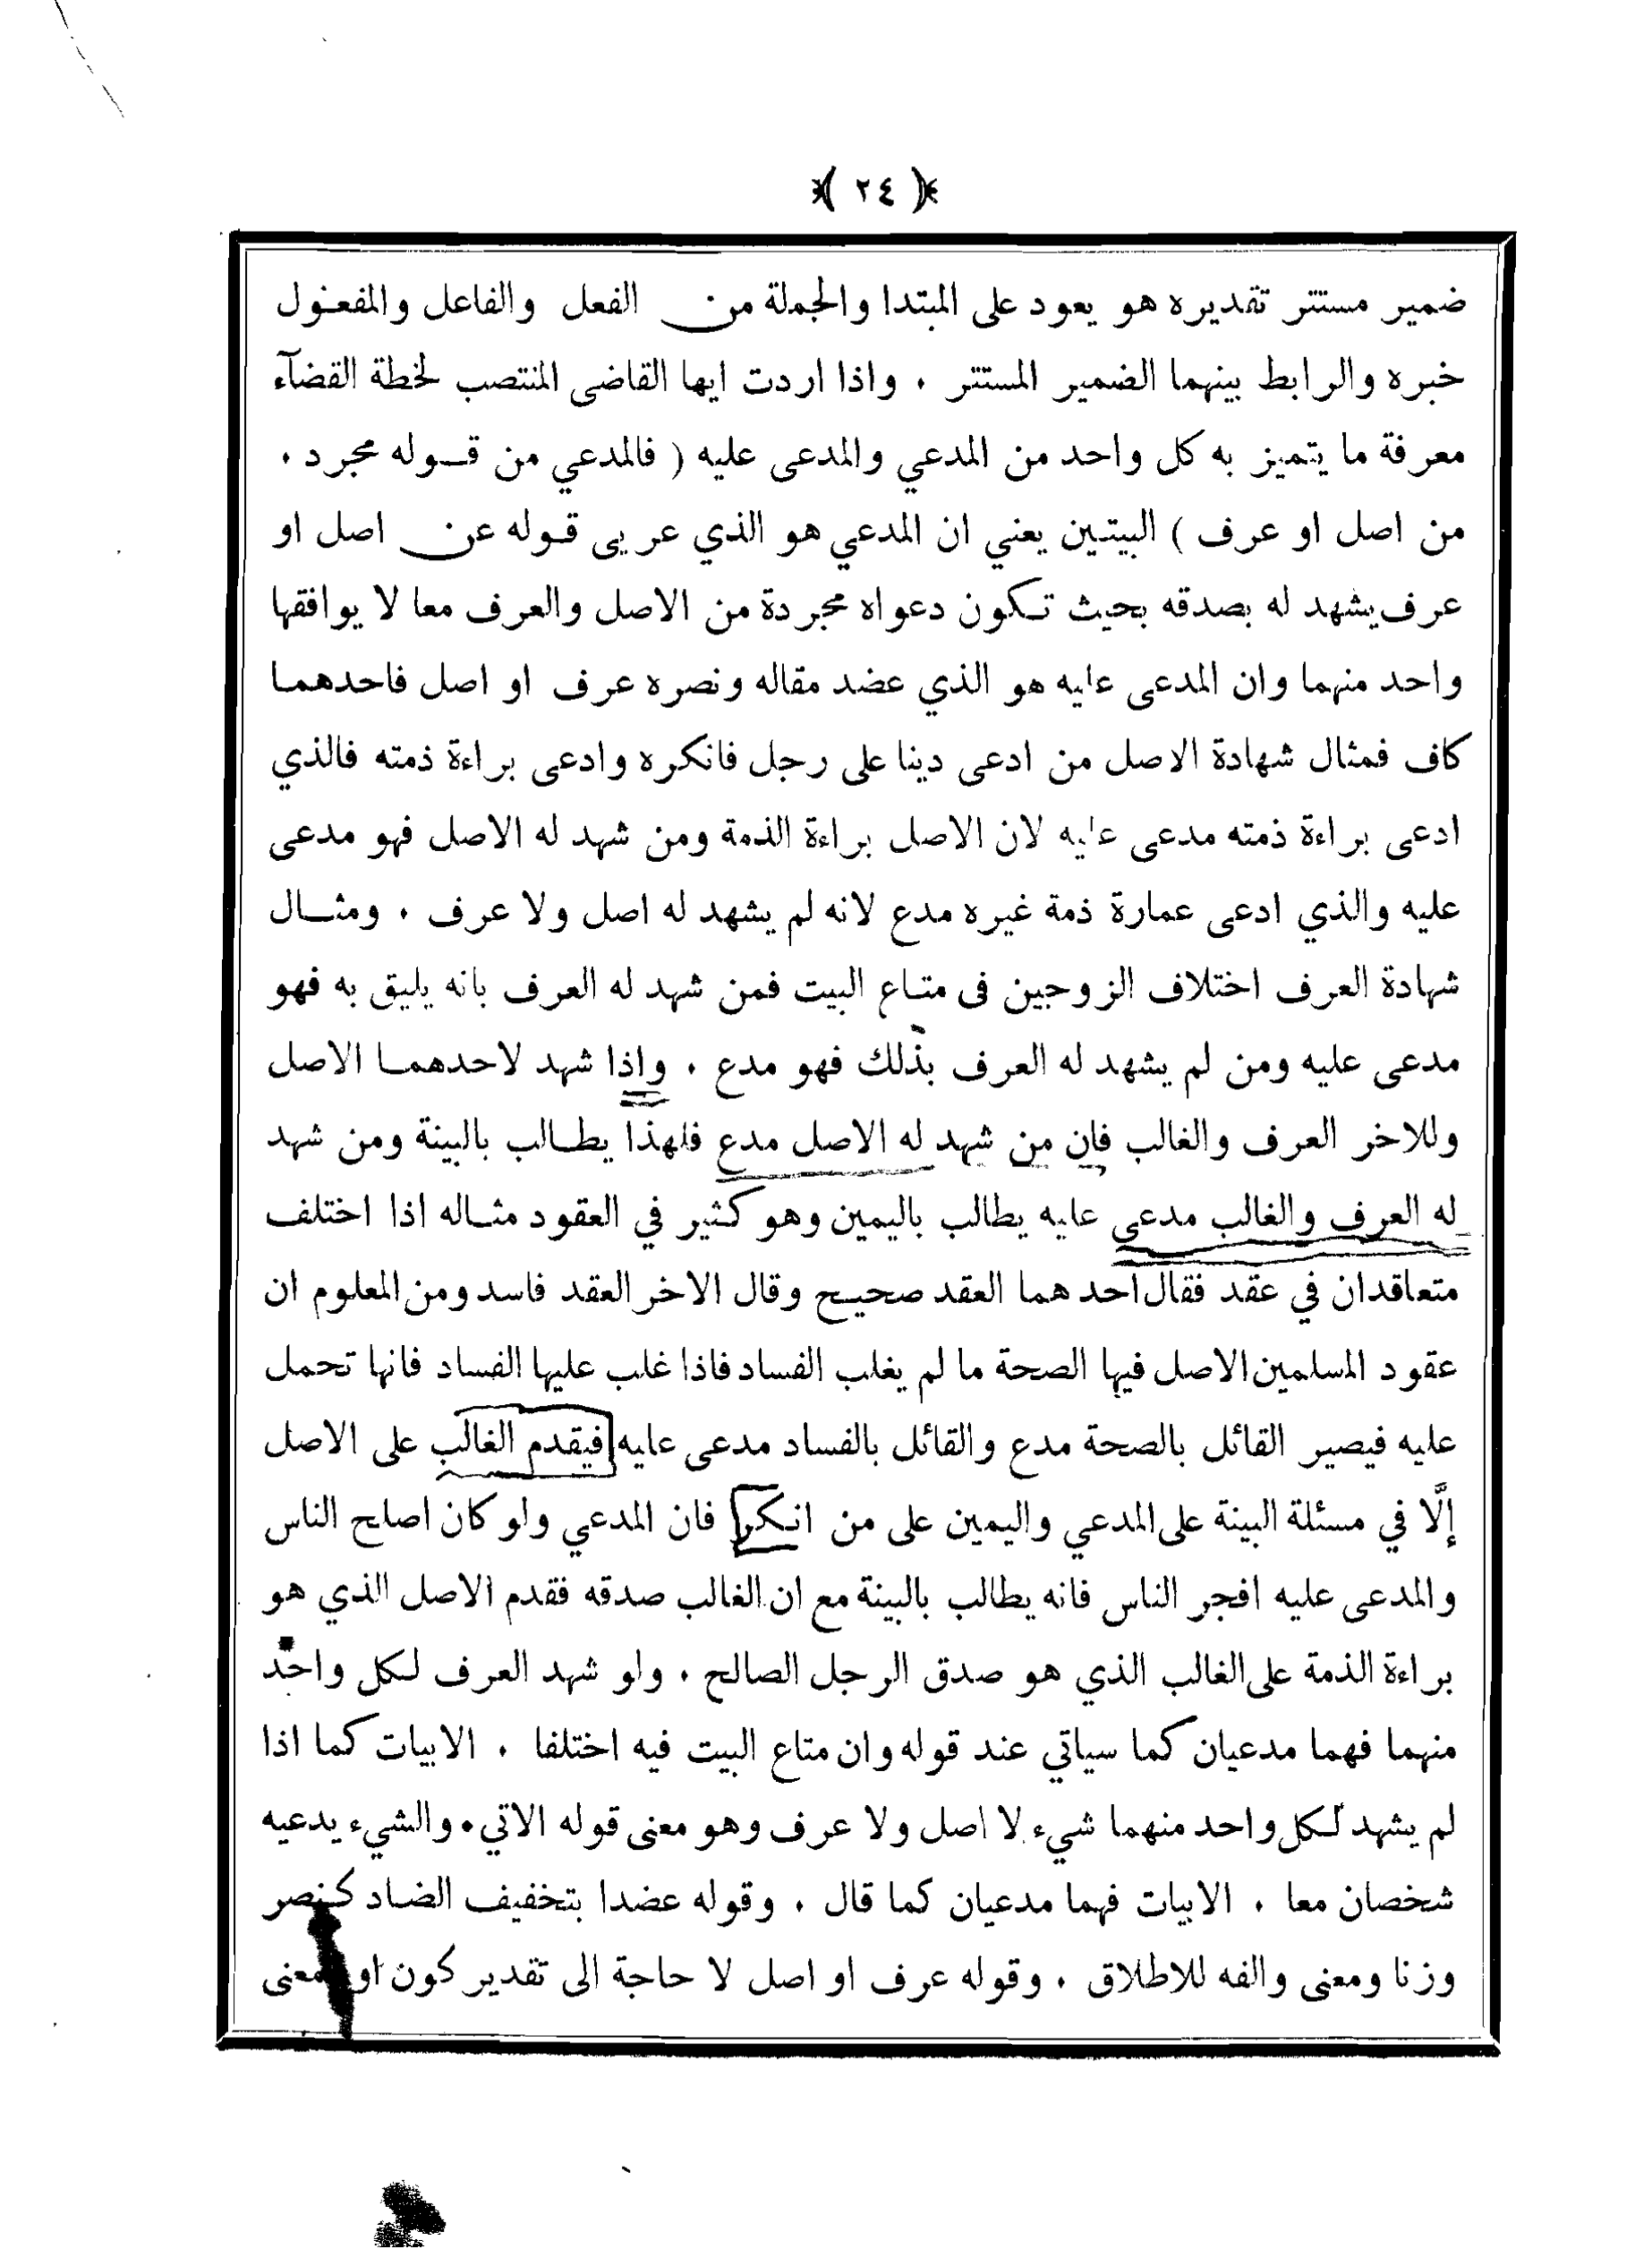 ﴿ ٢٤ ﴾
ضمير مستتر تقديره هو يعود على المبتدا والجملة من الفعل والفاعل والمفعول
خبره والرابط بينهما الضمير المستتر ٠ واذا اردت ايها القاضى المنتصب لخطة القضآء
معرفة ما يتميز به كل واحد من المدعي والمدعى عليه ( فالمدعي من قوله مجرد ٠
من اصل او عرف ) البيتين يعني ان المدعي هو الذي عرى قوله عن اصل او
عرف يشهد له بصدقه بحيث تكون دعواه مجردة من الاصل والعرف معا لا يوافقها
واحد منهما وان المدعى عليه هو الذي عضد مقاله ونصره عرف او اصل فاحدهما
كاف فمثال شهادة الاصل من ادعى دينا على رجل فانكره وادعى براءة ذمته فالذي
ادعى براءة ذمته مدعى عليه لان الاصل براءة الذمة ومن شهد له الاصل فهو مدعى
عليه والذي ادعى عمارة ذمة غيره مدع لانه لم يشهد له اصل ولا عرف ٠ ومثال
شهادة العرف اختلاف الزوجين فى متاع البيت فمن شهد له العرف بانه يليق به فهو
مدعى عليه ومن لم يشهد له العرف بذلك فهو مدع ٠ واذا شهد لاحدهما الاصل
وللاخر العرف والغالب فان من شهد له الاصل مدع فلهذا يطالب بالبينة ومن شهد
له العرف والغالب مدعى عليه يطالب باليمين وهو كثير في العقود مثاله اذا اختلف
متعاقدان في عقد فقال احدهما العقد صحيح وقال الاخر العقد فاسد ومن المعلوم ان
عقود المسلمين الاصل فيها الصحة ما لم يغلب الفساد فاذا غلب عليها الفساد فانها تحمل
عليه فيصير القائل بالصحة مدع والقائل بالفساد مدعى عليه فيقدم الغالب على الاصل
إلَّا في مسئلة البينة على المدعي واليمين على من انكر فان المدعي ولو كان اصلح الناس
والمدعى عليه افجر الناس فانه يطالب بالبينة مع ان الغالب صدقه فقدم الاصل الذي هو
براءة الذمة على الغالب الذي هو صدق الرجل الصالح ٠ ولو شهد العرف لكل واحد
منهما فهما مدعيان كما سياتي عند قوله وان متاع البيت فيه اختلفا ٠ الابيات كما اذا
لم يشهد لكل واحد منهما شيء لا اصل ولا عرف وهو معنى قوله الاتي ٠ والشيء يدعيه
شخصان معا ٠ الابيات فهما مدعيان كما قال ٠ وقوله عضدا بتخفيف الضاد كنصر
وزنا ومعنى والفه للاطلاق ٠ وقوله عرف او اصل لا حاجة الى تقدير كون او بمعنى